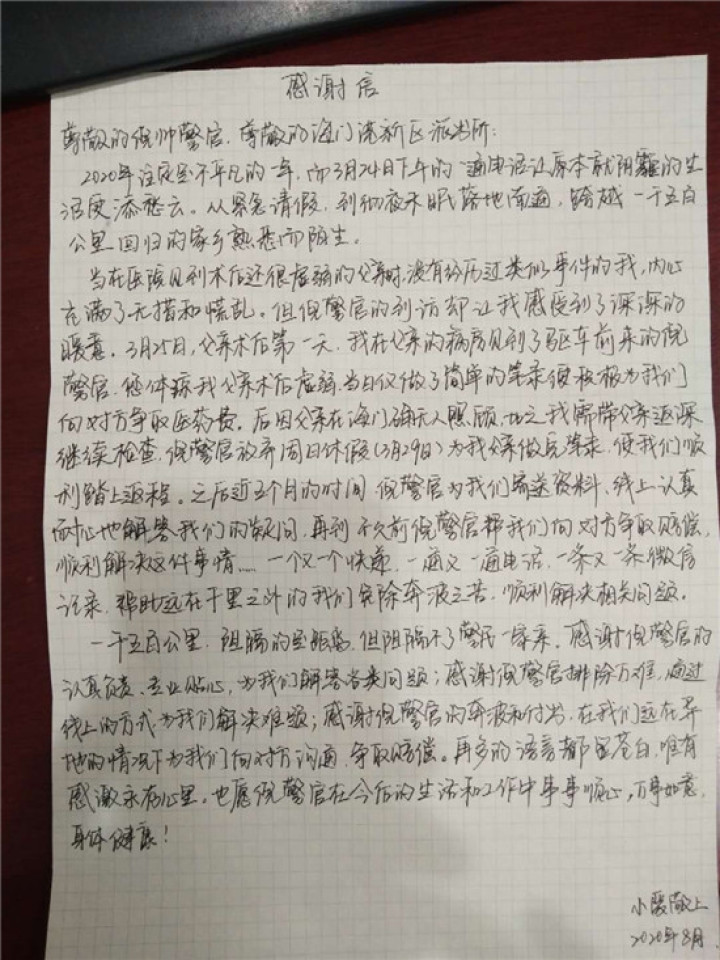 感谢信
尊敬的倪帅警官、尊敬的海门港新区派出所:
2020年注定是不平凡的一年,而3月24日下午的一通电话让原本就阴霾的生
活更添愁云。从紧急请假,到彻夜未眠落地南通,跨越一千五百
公里回归的家乡熟悉而陌生。
当在医院见到术后还很虚弱的父亲时,没有经历过类似事件的我,内心
充满了无措和慌乱。但倪警官的到访却让我感受到了深深的
暖意。3月25日,父亲术后第一天,我在父亲的病房见到了驱车前来的倪
警官,您体谅我父亲术后虚弱,当日仅做了简单的笔录便积极为我们
向对方争取医药费。后因父亲在海门确无人照顾,加之我需带父亲返深
继续检查,倪警官放弃周日休假(3月29日)为我父亲做完笔录,使我们顺
利踏上返程。之后近五个月的时间,倪警官为我们寄送资料、线上认真
耐心地解答我们的疑问,再到不久前倪警官帮我们向对方争取赔偿,
顺利解决这件事情……一个又一个快递,一通又一通电话,一条又一条微信
记录,帮助远在千里之外的我们免除奔波之苦,顺利解决相关问题。
一千五百公里,阻隔的是距离,但阻隔不了警民一家亲。感谢倪警官的
认真负责、专业贴心,为我们解答各类问题;感谢倪警官排除万难,通过
线上的方式为我们解决难题;感谢倪警官的奔波和付出,在我们远在异
地的情况下为我们向对方沟通、争取赔偿。再多的语言都显苍白,唯有
感激永存心里。也愿倪警官在今后的生活和工作中事事顺心,万事如意,
身体健康!
小 敬上
2020年8月